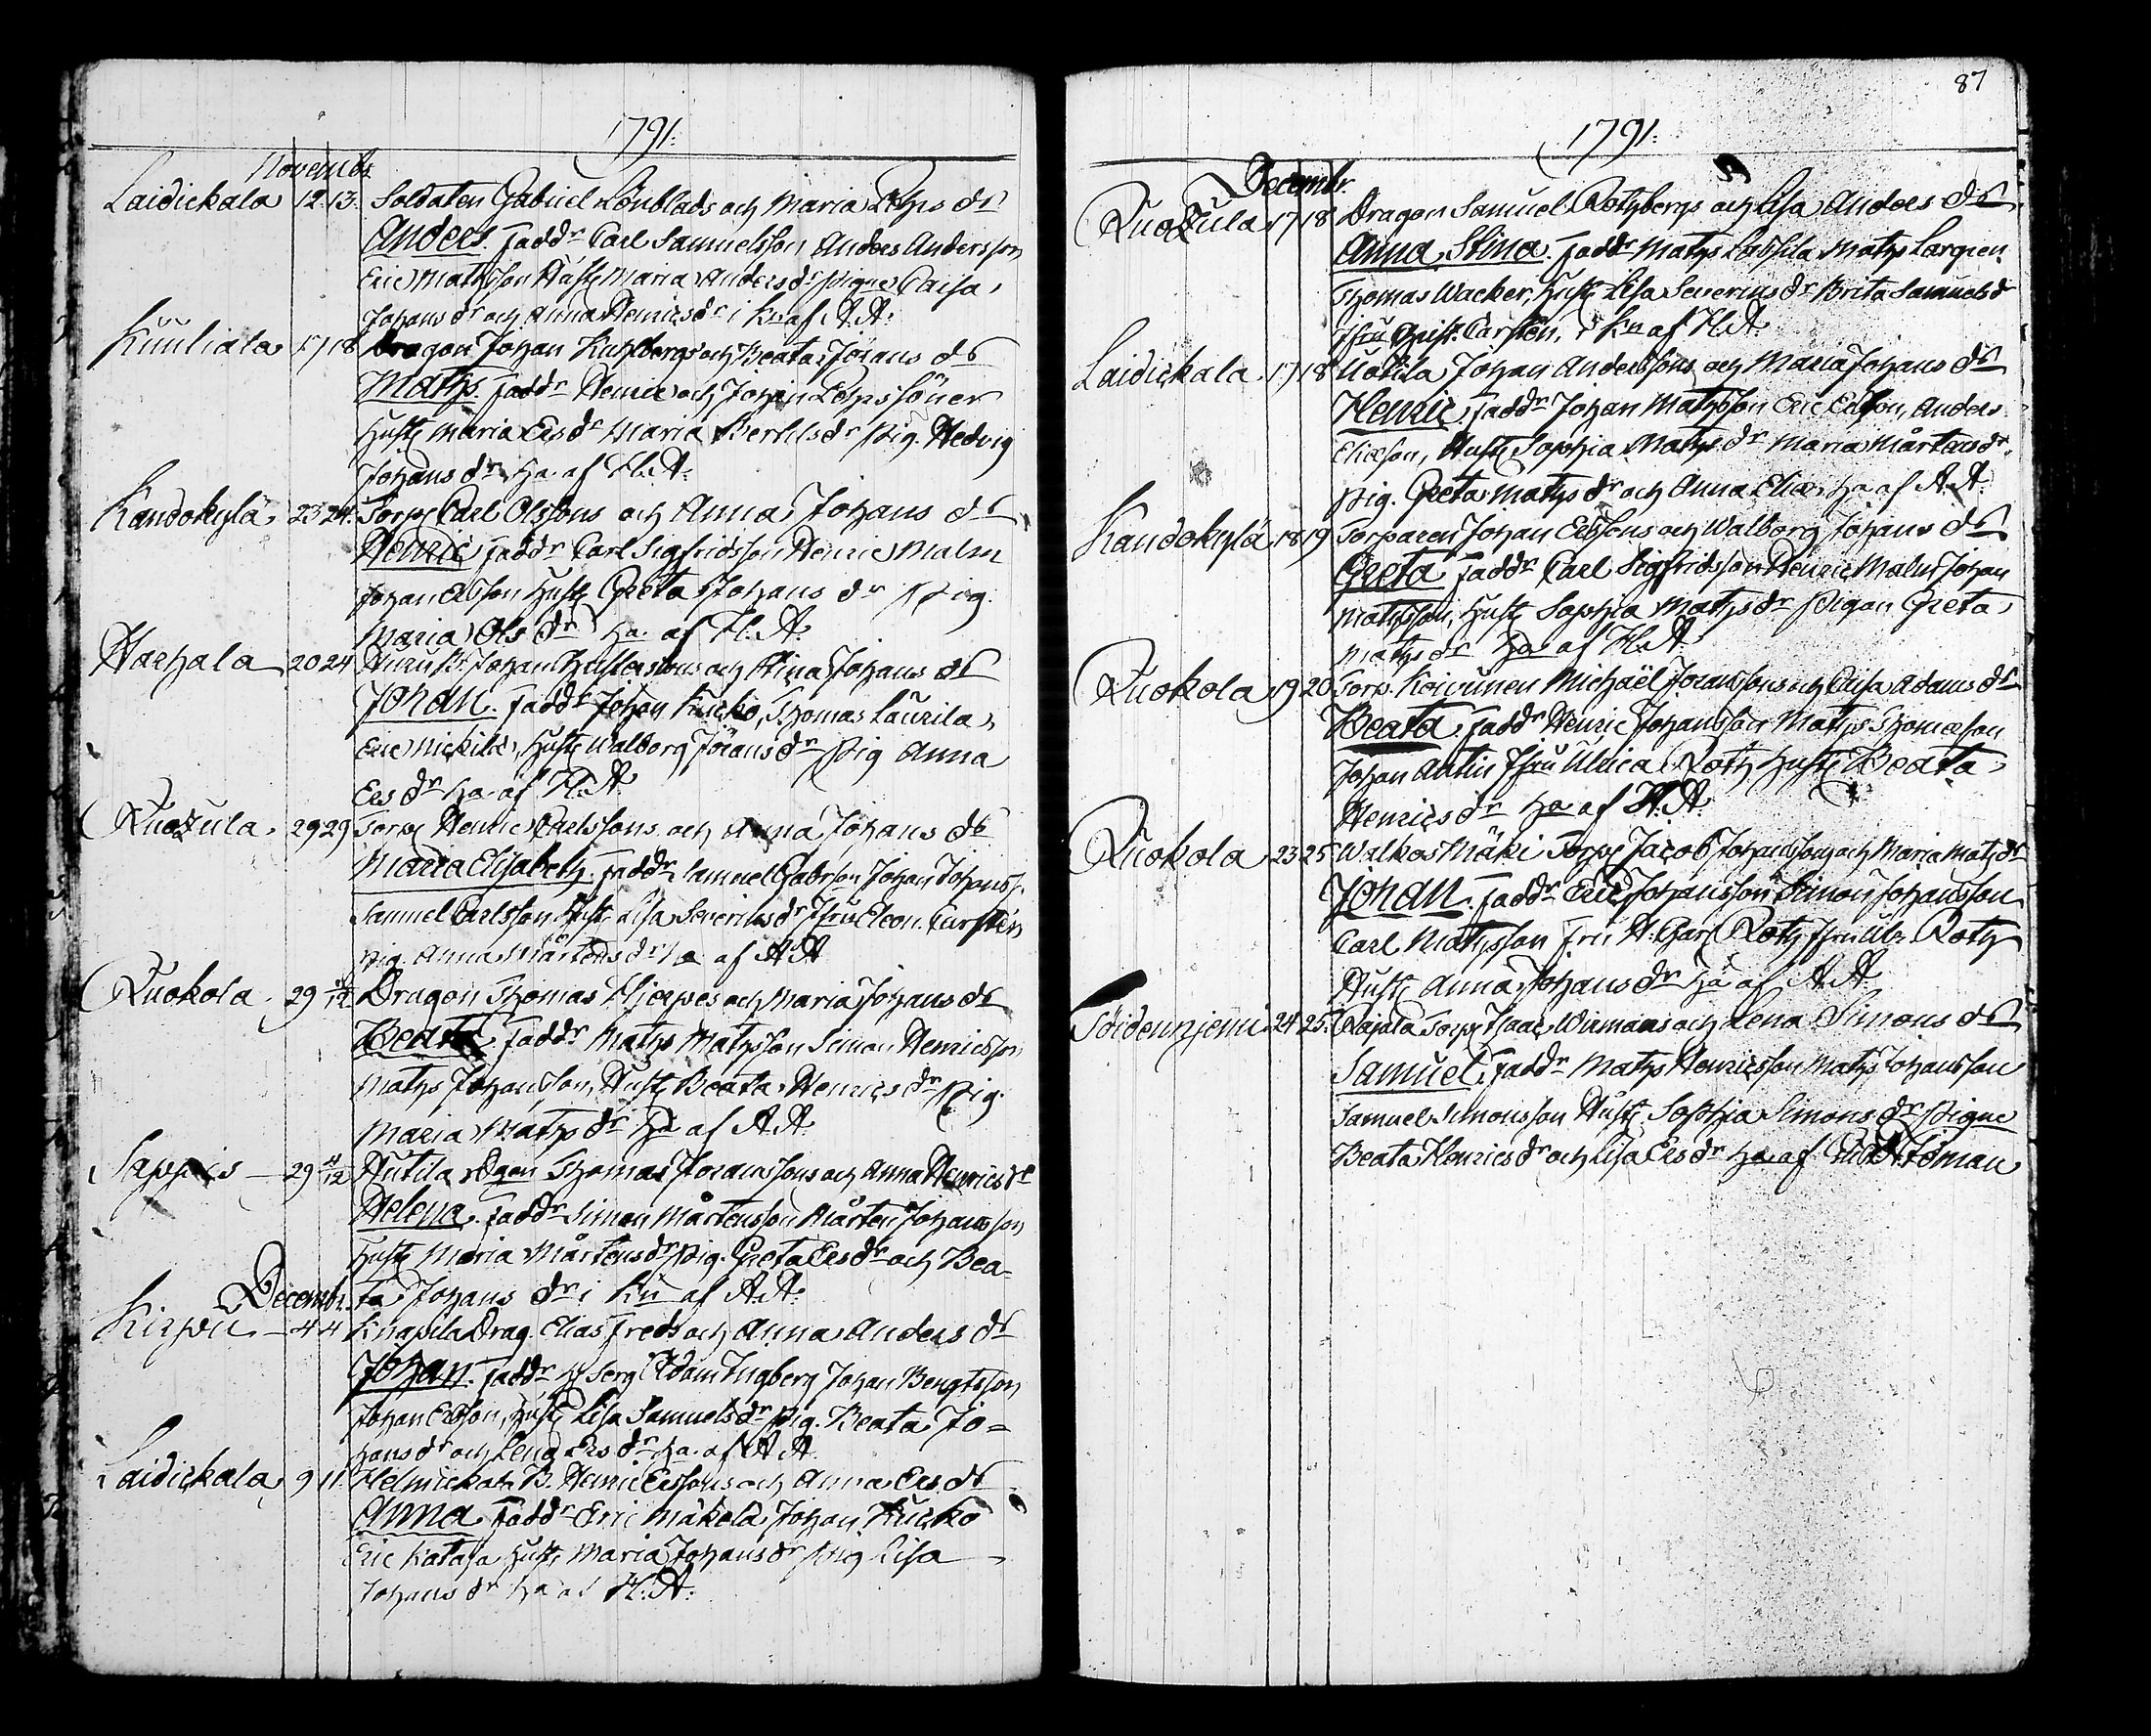 1791.
Novembr.
Laidickala 12 13. Soldaten Gabriel Lönblads och Maria dr
Anders. faddr Carl Samuelsson Anders Andersson
Eric Mathsson Hust Maria Andersdr Pigne Caisa
Johans dr och Anna Henricsdr i Kn af A.A.
Kuuliala 17 18 Dragon Johan Kuhlbergs och Beata Jörans dr
Maths. faddr Henric och Johan söner
Hust Maria Ersdr Maria Bertilsdr Pig. Hedvig
Johans dr ha. af H.A.
Kandokylä 23 24. Torp Carl Olssons och Anna Johans dr
Henric faddr Carl Sigfridsson Henric Malm
Johan Ersson Hust Greta Johans dr Pig.
Maria Ols dr ha. af H.A.
Harhala 20 24 Johan och Stina Johans dr
Johan. faddr Johan Kucko, Thomas Laurila,
Eric Nickilä, Hust Walborg Jörans dr Pig Anna
Ers dr ha af H.A.
Ruozula. 29 29 Torp Henric Carlssons och Anna Johans dr
Maria Elisabeth. faddr Samuel Gabrson Johan Johanss.
Samuel Carlsson Hust Lisa Severinsdr Jfru Eleon. Carstén
pig. Anna Mårtensdr ha af A.A
Ruokola. 29 4/12 Dragon Thomas Hjerpes och Maria Johans dr
Beata faddr Maths Mathsson Simon Henricsson
Maths Johansson, Hust Beata Henrics dr Pig.
Maria Maths dr ha af A.A.
Sappeis 29 4/12 Hutila Thomas Joransons och Anna Henricsdr
Helena. faddr Simon Mårtensson Mårten Johansson
Hust Maria Mårtensdr Pig. Greta Ersdr och Bea-
Decembr. ta Johans dr i Kn af A.A.
Kirpou 4 4 Knapila Drag. Elias Freds och Anna Anders dr
Johan. faddr Serg Adam Ingberg Johan Bengtsson
Johan Ersson, Hust Lisa Samuelsdr Pig. Beata Jo-
hansdr och Lena Ers dr ha. af A A
Laidickala 9 11. B. Henric Erssons och Anna Ers dr
Anna faddr Eric Mäkelä Johan Kucko
Eric Kataja Hust Maria Johansdr Pig Lisa
Johans dr ha af H.A.
87
1791.
Decembr.
Ruozula 17 18 Dragon Samuel Rothbergs och Lisa Anders dr
Anna Stina. faddr Maths Lassila Maths
Thomas Wacker, Hust Lisa Severins dr Brita Samuels d
Jfru Christ. Carstén, i Kn af H.A
Laidickala 17 18 Uotila Johan Anderssons och Maria Johans dr
Henric faddr Johan Mathsson Eric Ersson, Anders
Eliæson, Hust Sophia Mathsdr Maria Mårtensdr.
pig. Greta Mathsdr och Anna Eliæ ha af A.A.
Kandokylä 18 19 Torparen Johan Erssons och Walborg Johans dr
Greta faddr Carl Sigfridsson Henric Malm Johan
Mathsson, Hust Sophia Mathsdr Pigan Greta
Maths dr ha af H.A
Ruokola 19 20 Torp. Koivunen Michaël Joranssons och Caisa Adams dr
Beata. faddr Henric Johansson Maths Thomæson
Johan Antin Jfru Ulrica Roth Hust Beata
Henricsdr ha af H.A.
Ruokola 23 25 Walkas Mäki Torp Jacob Johanssons och Maria Mathsdr
Johan. faddr Eric Johansson Simon Johansson
Carl Mathsson fru H. Roth Jfru Ulr. Roth
Hust Anna Johansdr ha af A.A
Töidennjemi 24 25. Rajala Torp Isaac Wirmans och Lena Simons dr
Samuel. faddr Maths Henricsson Maths Johansson
Samuel Simonsson Hust Sophia Simons dr Pigne
Beata Henricsdr och Lisa Ersdr ha af Idman